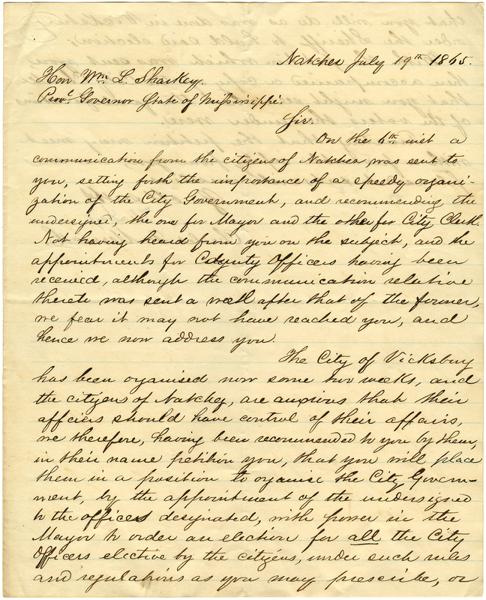 Natchez July 19th 1865.
Hon. Wm L Sharkey.
Provl Governor State of Mississippi.
Sir.
On the 6th inst a
communication from the citizens of Natchez was sent to
you, setting forth the importance of a speedy organi-
zation of the City Government, and recommending the
undersigned, the one for Mayor and the other for City Clerk.
Not having heard from you on the subject, and the
appointments for County Officers having been
received, although the communication relative
thereto was sent a week after that of the former,
we fear it may not have reached you, and
hence we now address you.
The City of Vicksburg
has been organised now some two weeks, and
the citizens of Natchez, are anxious that their
officers should have control of their affairs,
we therefore, having been recommended to you by them,
in their name petition you, that you will place
them in a position to organise the City Govern-
ment, by the appointment of the undersigned
to the offices designated, with power in the
Mayor to order an election for all the City
Officers elective by the citizens, under such rules
and regulations as you may prescribe, or